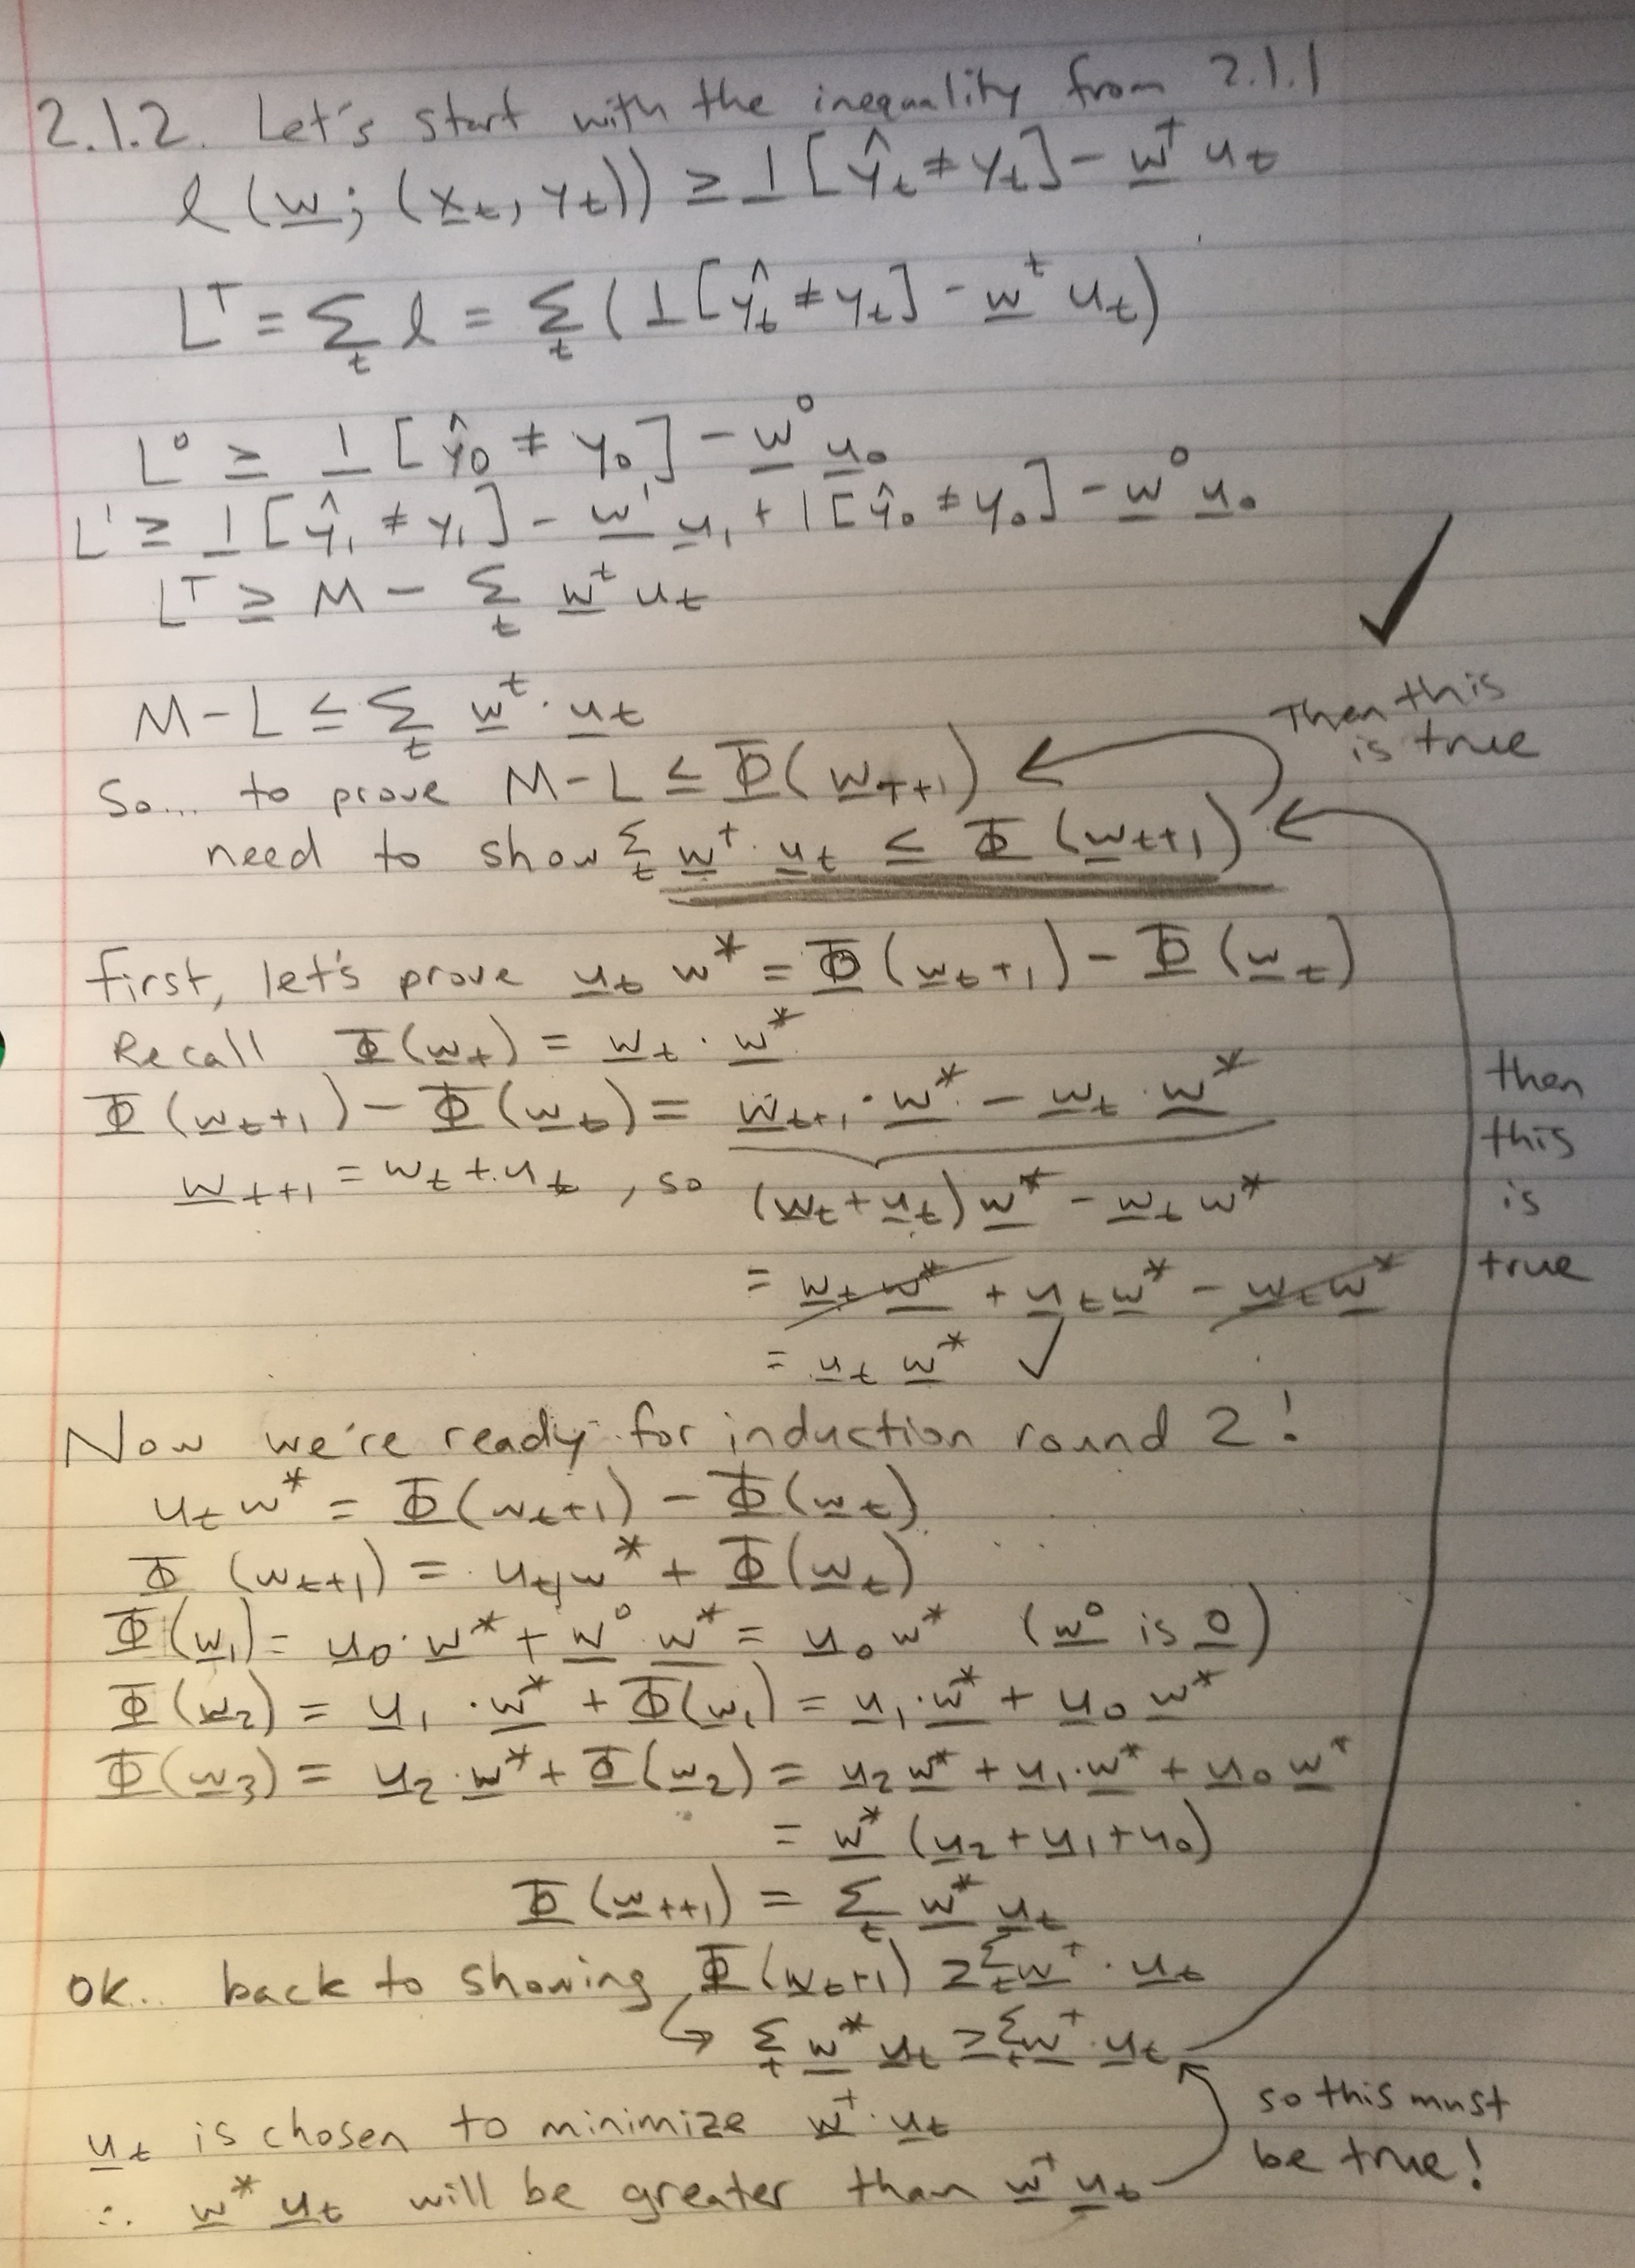 2.1.2. Let's start with the inequality from 2.1.1
ℓ(w; (x_t, y_t)) ≥ 1[ŷ_t ≠ y_t] - w^T u_t
L^T = Σ_t ℓ = Σ_t (1[ŷ_t ≠ y_t] - w^t u_t)
L^0 ≥ 1[ŷ_0 ≠ y_0] - w^0 u_0
L^1 ≥ 1[ŷ_1 ≠ y_1] - w^1 u_1 + 1[ŷ_0 ≠ y_0] - w^0 u_0
L^T ≥ M - Σ_t w^t u_t
✓
M - L ≤ Σ_t w^t · u_t
Then this
is true
So... to prove M - L ≤ Φ(w_T+1)
need to show Σ_t w^t · u_t ≤ Φ(w_t+1)
first, let's prove u_t w* = Φ(w_t+1) - Φ(w_t)
Recall Φ(w_t) = w_t · w*
Φ(w_t+1) - Φ(w_t) = w_t+1 · w* - w_t · w*
w_t+1 = w_t + u_t, so (w_t + u_t) w* - w_t w*
= w_t w* + u_t w* - w_t w*
= u_t w* ✓
then
this
is
true
Now we're ready for induction round 2!
u_t w* = Φ(w_t+1) - Φ(w_t)
Φ(w_t+1) = u_t w* + Φ(w_t)
Φ(w_1) = u_0 · w* + w^0 w* = u_0 w* (w^0 is 0)
Φ(w_2) = u_1 · w* + Φ(w_1) = u_1 · w* + u_0 w*
Φ(w_3) = u_2 · w* + Φ(w_2) = u_2 w* + u_1 · w* + u_0 w*
= w* (u_2 + u_1 + u_0)
Φ(w_t+1) = Σ_t w* u_t
OK.. back to showing Φ(w_t+1) ≥ Σ_t w^t · u_t
↳ Σ_t w* u_t ≥ Σ_t w^t · u_t
u_t is chosen to minimize w^t · u_t
∴ w* u_t will be greater than w^t u_t
so this must
be true!